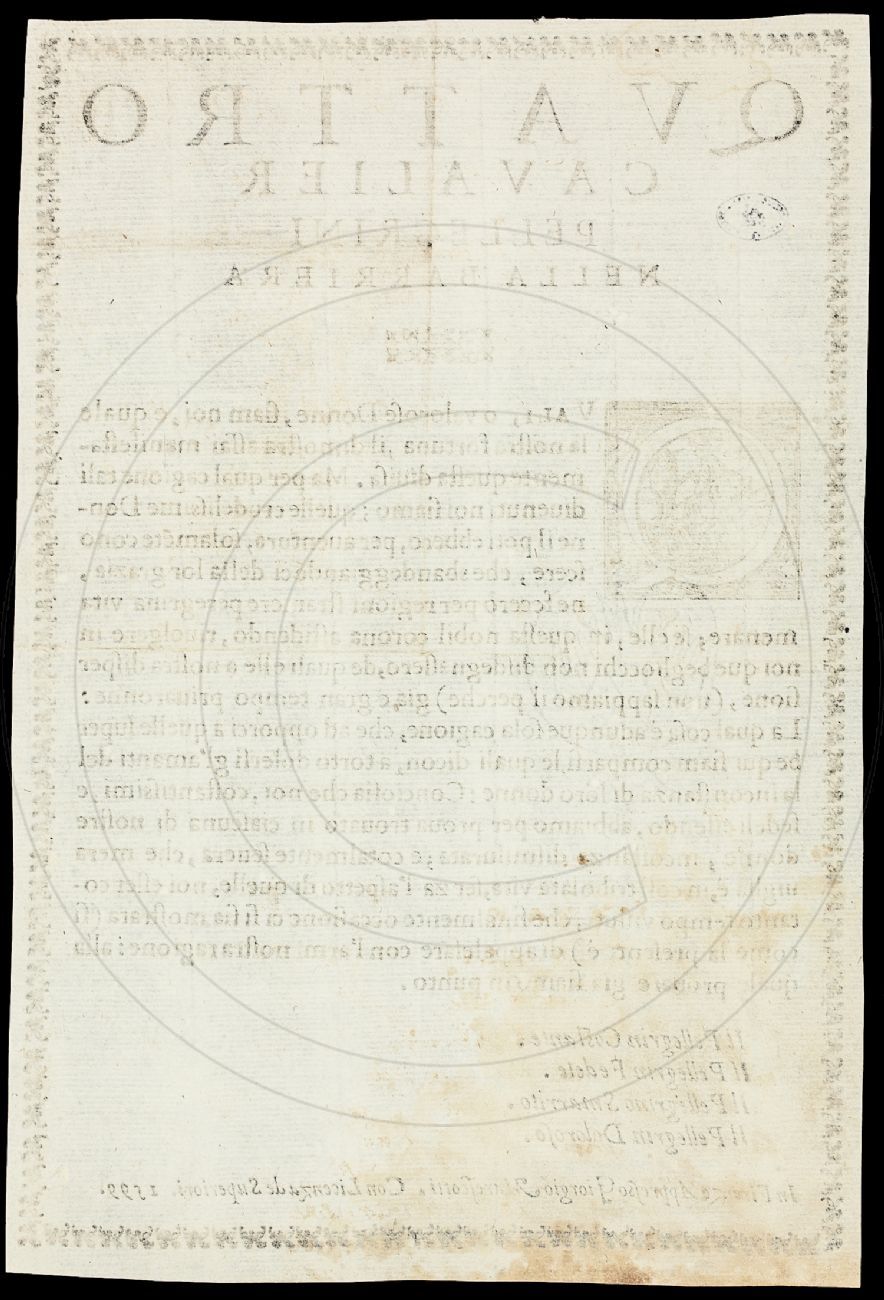 QVATTRO
CAVALIER
PELLEGRINI
NELLA BARRIERA
QVALI, o valorose Donne, siam noi, e quale
la nostra fortuna, il dimostra assai manifesta-
mente questa diuisa. Ma per qual cagione tali
diuenuti noi siamo; quelle crudelissime Don-
ne il potrebbero, per auentura, solamēte cono
scere, che sbandeggiandoci della lor grazia,
ne fecero per regioni straniere peregrina vita
menare; se elle, in questa nobil corona assidendo, riuolger in
noi que begliocchi non disdegnassero, de quali elle a nostra disper
sione, (non sappiamo il perche) già è gran tempo priuaronne:
La qual cosa è adunque sola cagione, che ad opporci a quelle super
be qui siam comparsi, le quali dicon, a torto dolersi gl'amanti del
la inconstanza di loro donne: Conciosia che noi, costantissimi, e
fedeli essendo, abbiamo per proua trouato in ciascuna di nostre
donne, incostanza smisurata; e coralmente seuera, che mera
uiglia è, in così tribolate vite, senza l'aspetto di quelle, noi esser co-
tanto tempo viuuti; che finalmente occasione ci si sia mostrata (si
come la presente è) di appalesare con l'armi nostra ragione: alla
qual prouare già siam in punto.
Il Pellegrin Costante.
Il Pellegrin Fedele.
Il Pellegrino Smarrito.
Il Pellegrin Doloroso.
In Firenze Appresso Giorgio Marescotti. Con Licenza de Superiori. 1599.